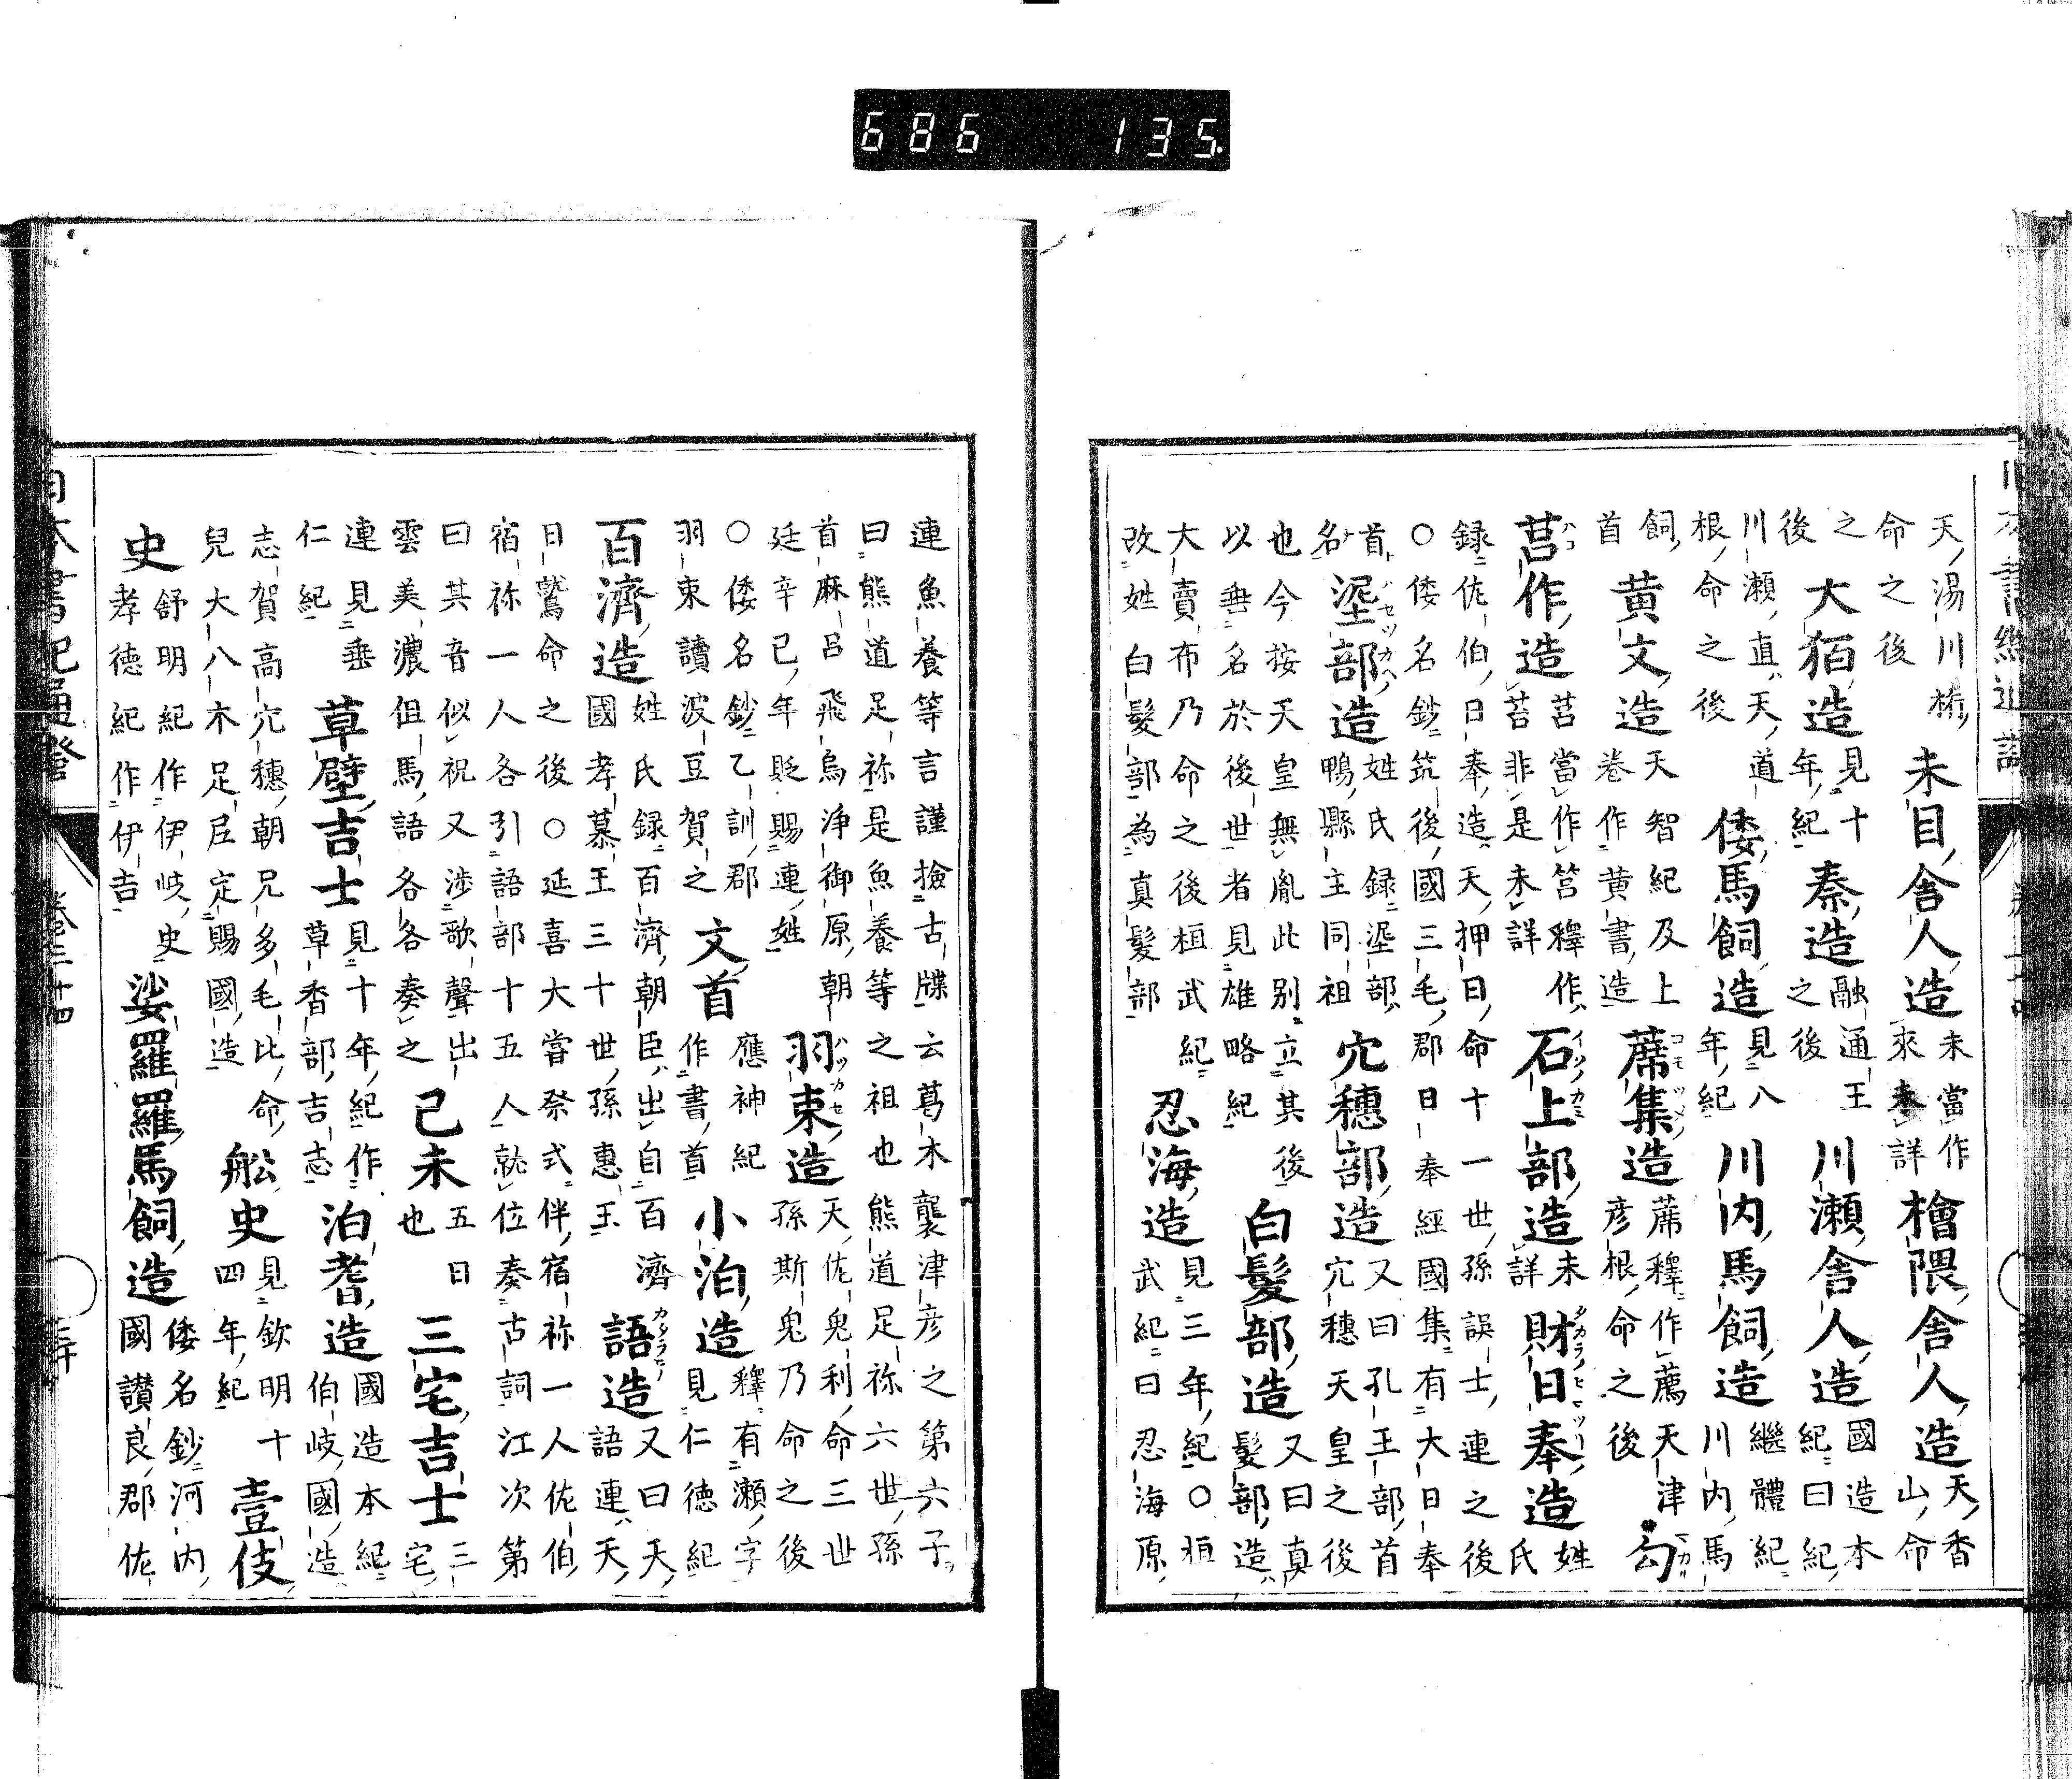 天湯川桁命之後 未目舍人造 未當作來未詳 檜隈舍人造 天香山命
之後 大狛造 見十年紀 秦造 融通王之後 川瀬舍人造 國造本紀曰紀
川瀬直天道根命之後 倭馬飼造 見八年紀 川内馬飼造 繼體紀川内馬
飼首 黄文造 天智紀及上卷作黄書造 蓆集造 蓆釋作薦天津彦根命之後 勾
莒作造 莒當作筥釋作苔非是未詳 石上部造 未詳 財日奉造 姓氏
録佐伯日奉造天押日命十一世孫誤士連之後○倭名鈔筑後國三毛郡日奉經國集有大日奉
首名 埿部造 姓氏録埿部鴨縣主同祖 穴穗部造 又曰孔王部首穴穗天皇之後
也今按天皇無胤此別立其後以垂名於後世者見雄略紀 白髮部造 又曰真髮部造
大賣布乃命之後桓武紀改姓白髮部為真髮部 忍海造 見三年紀○桓武紀曰忍海原
連魚養等言謹撿古牒云葛木襲津彦之第六子曰熊道足祢是魚養等之祖也熊道足祢六世孫
首麻呂飛鳥淨御原朝廷辛已年貶賜連姓 羽束造 天佐鬼利命三世孫斯鬼乃命之後
○倭名鈔乙訓郡羽束讀波豆賀之 文首 應神紀作書首 小泊造 釋有瀬字見仁徳紀
百濟造 姓氏録百濟朝臣出自百濟國孝慕王三十世孫惠王 語造 又曰天語連天
日鷲命之後○延喜大嘗祭式伴宿祢一人佐伯宿祢一人各引語部十五人就位奏古詞江次第
曰其音似祝又渉歌聲出雲美濃但馬語各各奏之 己未 五日也 三宅吉士 三宅
連見垂仁紀 草壁吉士 見十年紀作草香部吉志 泊耆造 國造本紀伯岐國造
志賀高穴穗朝兄多毛比命兒大八木足尼定賜國造 舩史 見欽明十四年紀 壹伎
史 舒明紀作伊岐史孝徳紀作伊吉 娑羅羅馬飼造 倭名鈔河内國讃良郡佐
日本書紀通證 卷三十四